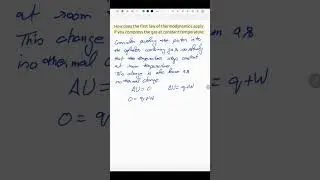 at room
This change
no thermal c
How does the first law of thermodynamics apply
if you compress the gas at constant temperature
Consider pushing the piston into
the cylinder containing gas so slowly
that the temperature stays constant
at room temperature.
This change is also known as
isothermal change
ΔU = 0 ΔU = q+W
0 = q+W
as
= q+W